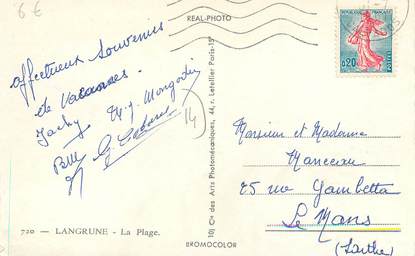 6 €
REAL-PHOTO
RÉPUBLIQUE FRANÇAISE
0,20
POSTES
affectueux Souvenirs
de Vacances.
Jacky M-J. Mongodin
14
720 — LANGRUNE - La Plage.
10) Cie des Arts Photomécaniques, 44, r. Letellier Paris-15e
BROMOCOLOR
Monsieur et Madame
Manceau
25 rue Gambetta
Le Mans
(Sarthe)